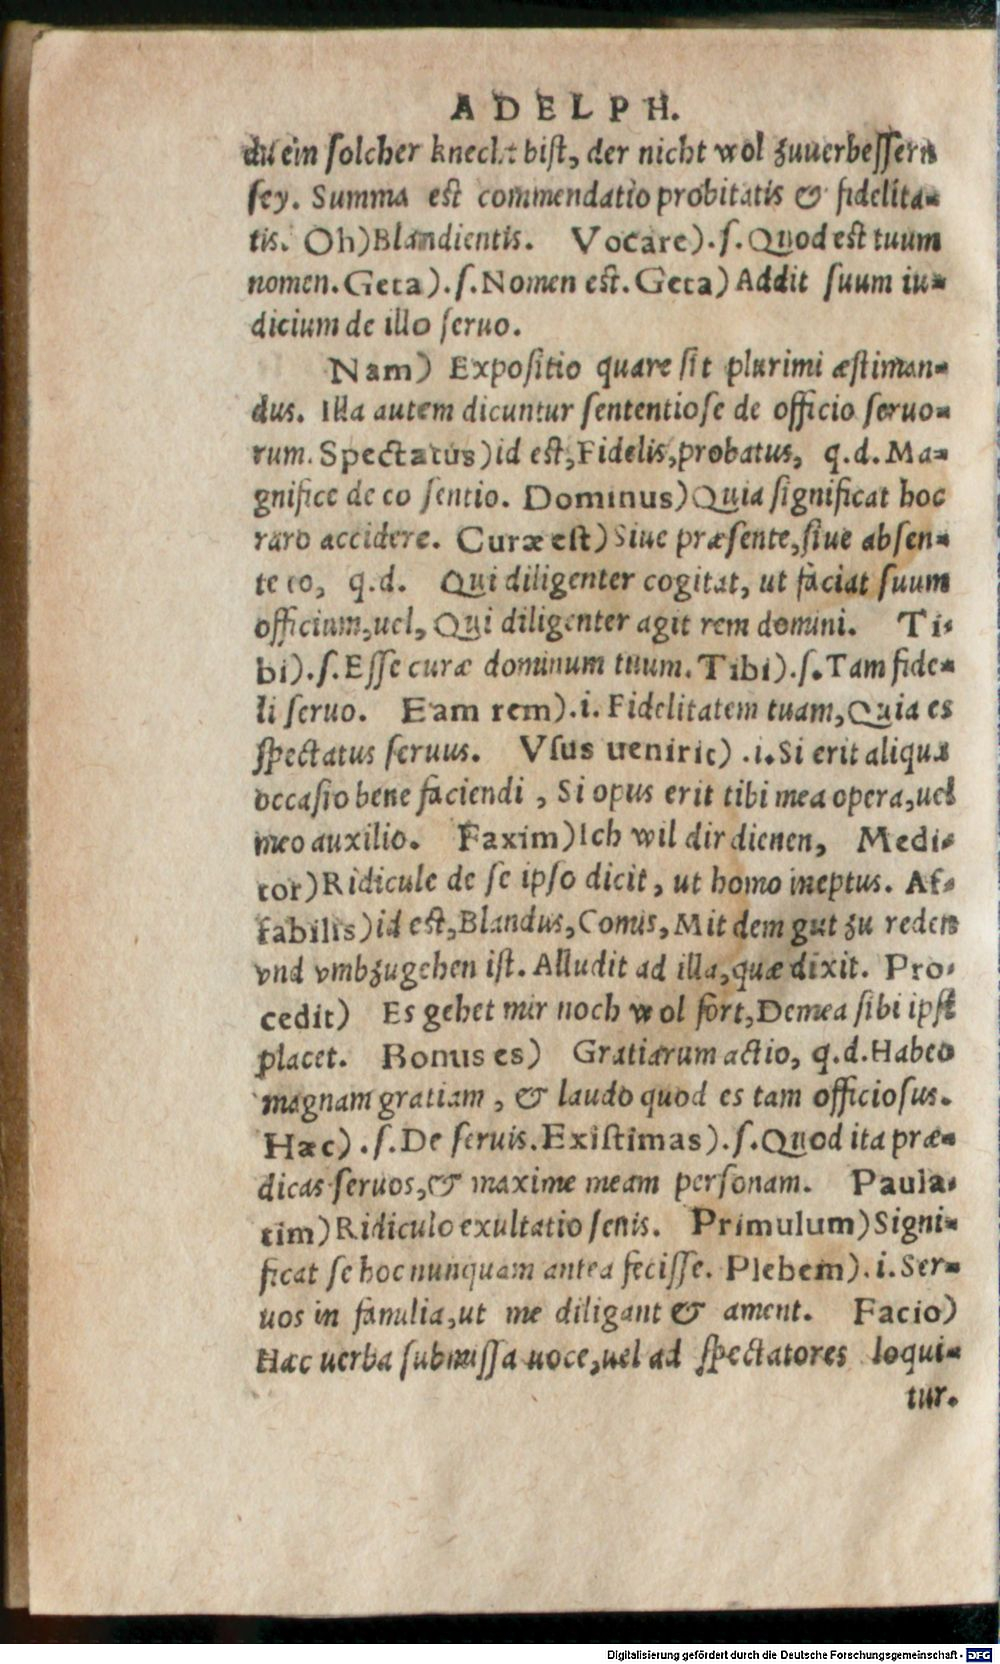 ADELPH.
du ein ſolcher knecht biſt, der nicht wol zuuerbeſſern
ſey. Summa est commendatio probitatis & fidelita-
tis. Oh) Blandientis. Vocare). ſ. Quod est tuum
nomen. Geta). ſ. Nomen est. Geta) Addit ſuum iu-
dicium de illo ſeruo.
Nam) Expoſitio quare ſit plurimi æſtiman-
dus. Illa autem dicuntur ſententioſe de officio ſeruo-
rum. Spectatus) id est, Fidelis, probatus, q. d. Ma-
gnifice de eo ſentio. Dominus) Quia ſignificat hoc
raro accidere. Curæ est) Siue præſente, ſiue abſen-
te eo, q. d. Qui diligenter cogitat, ut faciat ſuum
officium, uel, Qui diligenter agit rem domini. Ti-
bi). ſ. Eſſe curæ dominum tuum. Tibi). ſ. Tam fide-
li ſeruo. Eam rem). i. Fidelitatem tuam, Quia es
ſpectatus ſeruus. Vſus uenirit) . i. Si erit aliqua
occaſio bene faciendi, Si opus erit tibi mea opera, uel
meo auxilio. Faxim) Ich wil dir dienen, Medi-
tor) Ridicule de ſe ipſo dicit, ut homo ineptus. Af-
fabilis) id est, Blandus, Comis, Mit dem gut zu reden
vnd vmbzugehen iſt. Alludit ad illa, quæ dixit. Pro-
cedit) Es gehet mir noch wol fort, Demea ſibi ipſi
placet. Bonus es) Gratiarum actio, q. d. Habeo
magnam gratiam, & laudo quod es tam officioſus.
Hæc) . ſ. De ſeruis. Exiſtimas). ſ. Quod ita præ-
dicas ſeruos, & maxime meam perſonam. Paula-
tim) Ridiculo exultatio ſenis. Primulum) Signi-
ficat ſe hoc nunquam antea feciſſe. Plebem). i. Ser-
uos in familia, ut me diligant & ament. Facio)
Hæc uerba ſubmiſſa uoce, uel ad ſpectatores loqui-
tur.
Digitalisierung gefördert durch die Deutsche Forschungsgemeinschaft - DFG